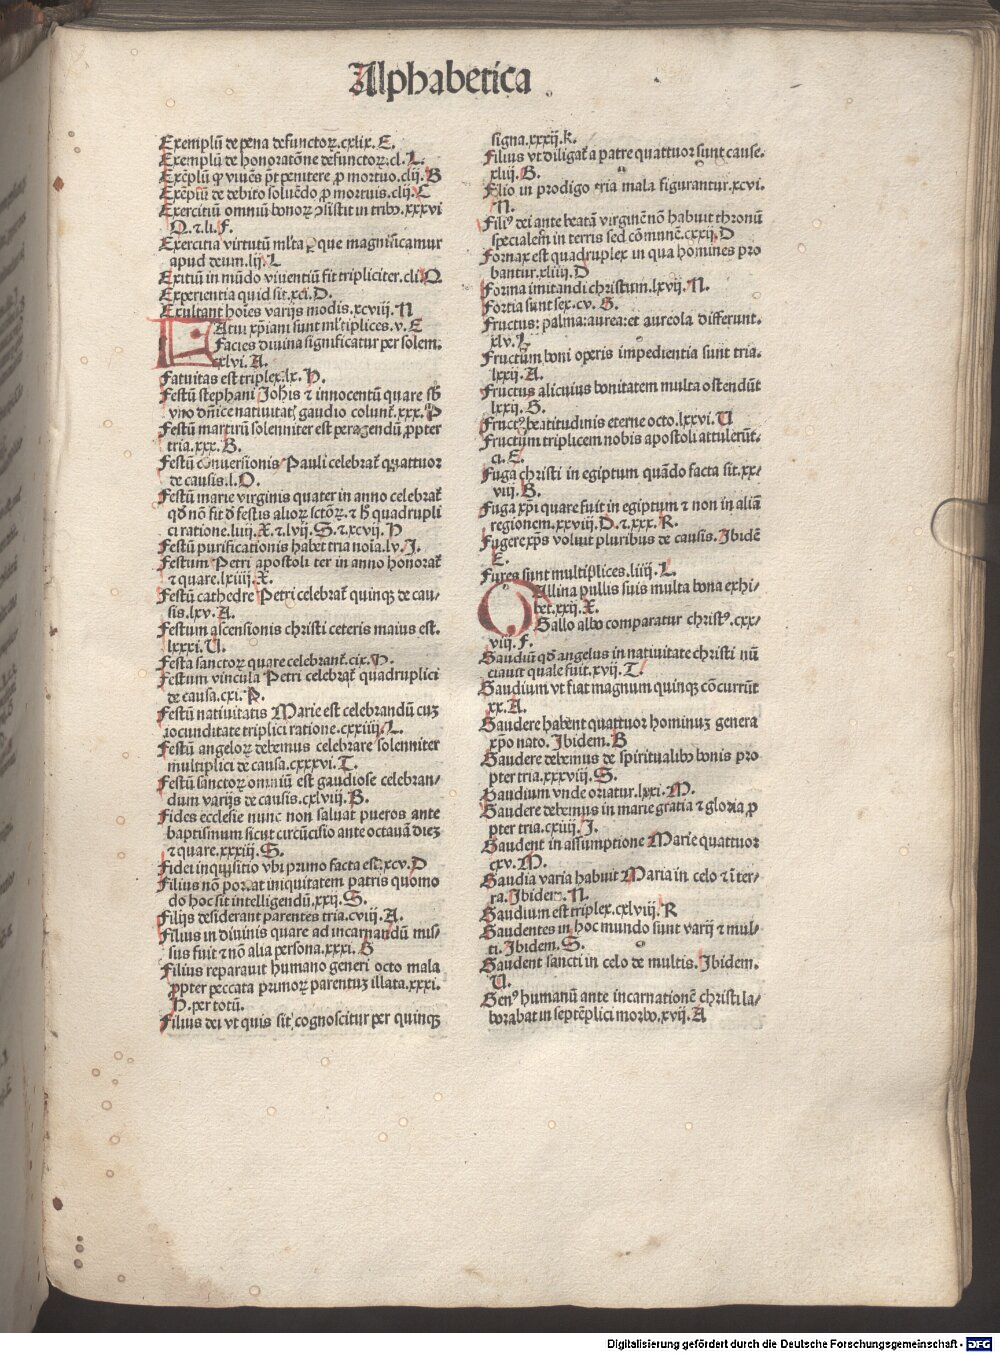 Alphabetica
Exemplũ de pena defunctoꝝ.cxlix.E.
Exemplũ de honoratõne defunctoꝝ.cl.L.
Exẽplũ ꝙ viuẽs pt̃ penitere ꝓ mortuo.clij.B
Exẽplũ de debito soluẽdo ꝓ mortuis.clij.C
Exercitiũ omniũ bonoꝝ ꝯsistit in tribꝰ.xxxvi
O.⁊.li.F.
Exercitia virtutũ ml̃ta que magnificamur
apud deum.lij.L
Exitiũ in mũdo viuentiũ fit tripliciter.cli.O.
Experientia quid sit.xci.D.
Exultant hoĩes varijs modis.xcviii.N
Atui xp̃iani sunt ml̃tiplices.v.E
Facies diuina significatur per solem.
xlvi.A.
Fatuitas est triplex.lx.H.
Festũ stephani Joh̃is ⁊ innocentũ quare sb̃
vno dñice natiuitatꝭ gaudio colunt̃.xxx.P
Festũ martirũ solenniter est peragendũ ꝓpter
tria.xxx.B.
Festũ conuersionis Pauli celebrat̃ quattuor
de causis.l.O.
Festũ marie virginis quater in anno celebrat̃
qđ nõ fit đ festis alioꝝ sctõꝝ.⁊ h̃ quadrupli
ci ratione.liiij.X.⁊ lvij.S.⁊ xcvij.H
Festũ purificationis habet tria noĩa.lv.J.
Festum Petri apostoli ter in anno honorat̃
⁊ quare.lxiiij.X.
Festũ cathedre Petri celebrat̃ quinqꝫ de cau-
sis.lxv.A.
Festum ascensionis christi ceteris maius est.
lxxxi.U.
Festa sanctoꝝ quare celebrant̃.cix.H.
Festum vincula Petri celebrat̃ quadruplici
de causa.cxi.P.
Festũ natiuitatis Marie est celebrandũ cuꝫ
iocunditate triplici ratione.cxxiiij.L.
Festũ angeloꝝ debemus celebrare solenniter
multiplici de causa.cxxxvi.T.
Festũ sanctoꝝ omniũ est gaudiose celebran-
dum varijs de causis.cxlviij.B.
Fides ecclesie nunc non saluat pueros ante
baptismum sicut circũcisio ante octauã dieꝫ
⁊ quare.xxxiij.S.
Fidei inquisitio vbi primo facta est.xcv.D
Filius nõ portat iniquitatem patris quomo
do hoc sit intelligendũ.xxij.S.
Filijs desiderant parentes tria.cviij.A.
Filius in diuinis quare ad incarnandũ mis-
sus fuit ⁊ nõ alia persona.xxxi.B
Filius reparauit humano generi octo mala
ꝓpter peccata primoꝝ parentuꝫ illata.xxxi.
H.per totũ.
Filius dei vt quis sit cognoscitur per quinqꝫ
signa.xxxij.k.
Filius vt diligat̃ a patre quattuor sunt cause.
xliij.B.
Filio in prodigo tria mala figurantur.xcvi.
N.
Filiꝰ dei ante beatã virginẽ nõ habuit thronũ
specialem in terris sed cõmunẽ.cxxij.D
Fornax est quadruplex in qua homines pro
bantur.xliiij.D
Forma imitandi christum.lxvij.N.
Fortia sunt sex.cv.G.
Fructus: palma:aurea:et aureola differunt.
xlv.L
Fructum boni operis impedientia sunt tria.
lxxij.A.
Fructus alicuius bonitatem multa ostendũt
lxxij.S.
Fructꝰ beatitudinis eterne octo.lxxvi.U
Fructum triplicem nobis apostoli attulerũt.
ci.E.
Fuga christi in egiptum quãdo facta sit.xx-
viij.B.
Fuga xp̃i quare fuit in egiptum ⁊ non in aliã
regionem.xxviij.D.⁊.xxx.R.
Fugere xp̃s voluit pluribus de causis.Ibidẽ
E.
Fures sunt multiplices.liiij.L.
Allina pullis suis multa bona exhi-
bet.xxij.X.
Gallo albo comparatur christꝰ.cxx-
viij.F.
Gaudiũ qđ angelus in natiuitate christi nũ
ciauit quale fuit.xvij.T.
Gaudium vt fiat magnum quinqꝫ cõcurrũt
xx.A.
Gaudere habent quattuor hominuꝫ genera
xp̃o nato.Ibidem.B
Gaudere debemus de spiritualibꝰ bonis pro
pter tria.xxxviij.S.
Gaudium vnde oriatur.lxxi.M.
Gaudere debemus in marie gratia ⁊ gloria ꝓ
pter tria.cxiiij.J.
Gaudent in assumptione Marie quattuor
cxv.M.
Gaudia varia habuit Maria in celo ⁊ ĩ ter-
ra.Ibidem.N.
Gaudium est triplex.cxlviij.R
Gaudentes in hoc mundo sunt varij ⁊ mul-
ti.Ibidem.S.
Gaudent sancti in celo de multis.Ibidem.
U.
Genꝰ humanũ ante incarnationẽ christi la-
borabat in septẽplici morbo.xvij.A
Digitalisierung gefördert durch die Deutsche Forschungsgemeinschaft - DFG